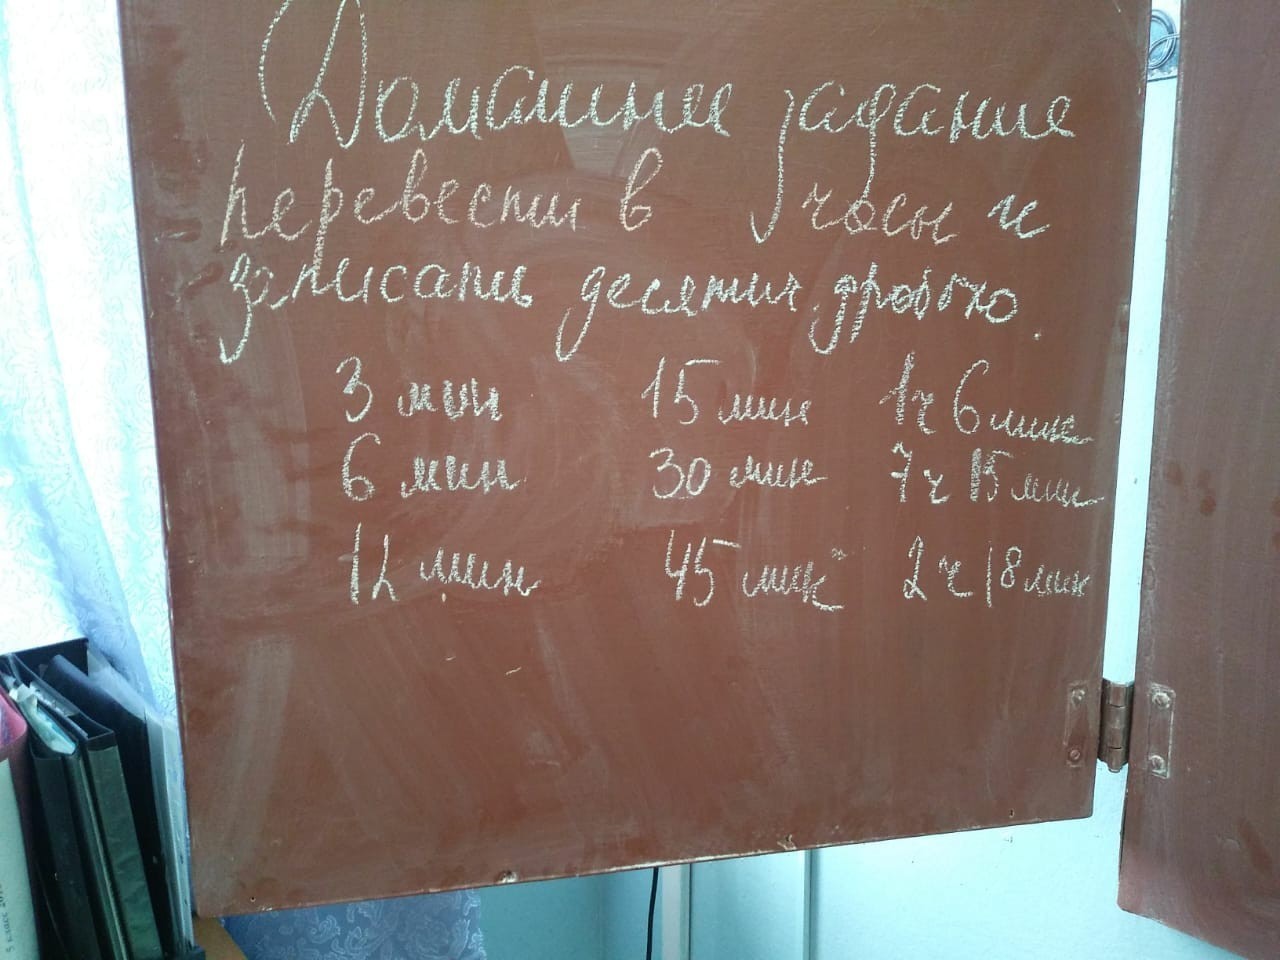 Домашнее задание
перевести в часы и
записать десятич. дробью.
3 мин 15 мин 1ч 6 мин
6 мин 30 мин 7 ч 15 мин
12 мин 45 мин 2 ч 18 мин